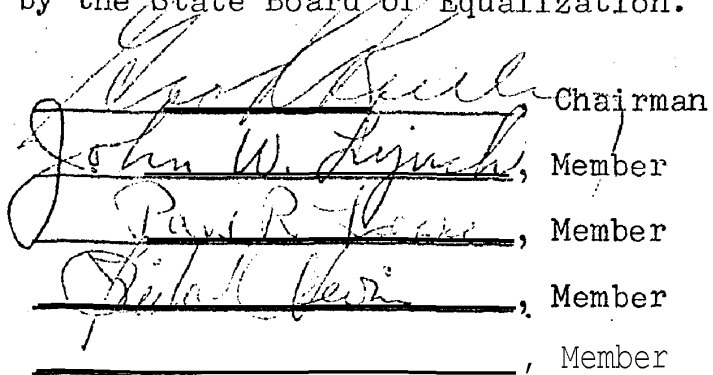 by the State Board of Equalization.
, Chairman
John W. Lynch, Member
Paul R. Leake, Member
, Member
, Member